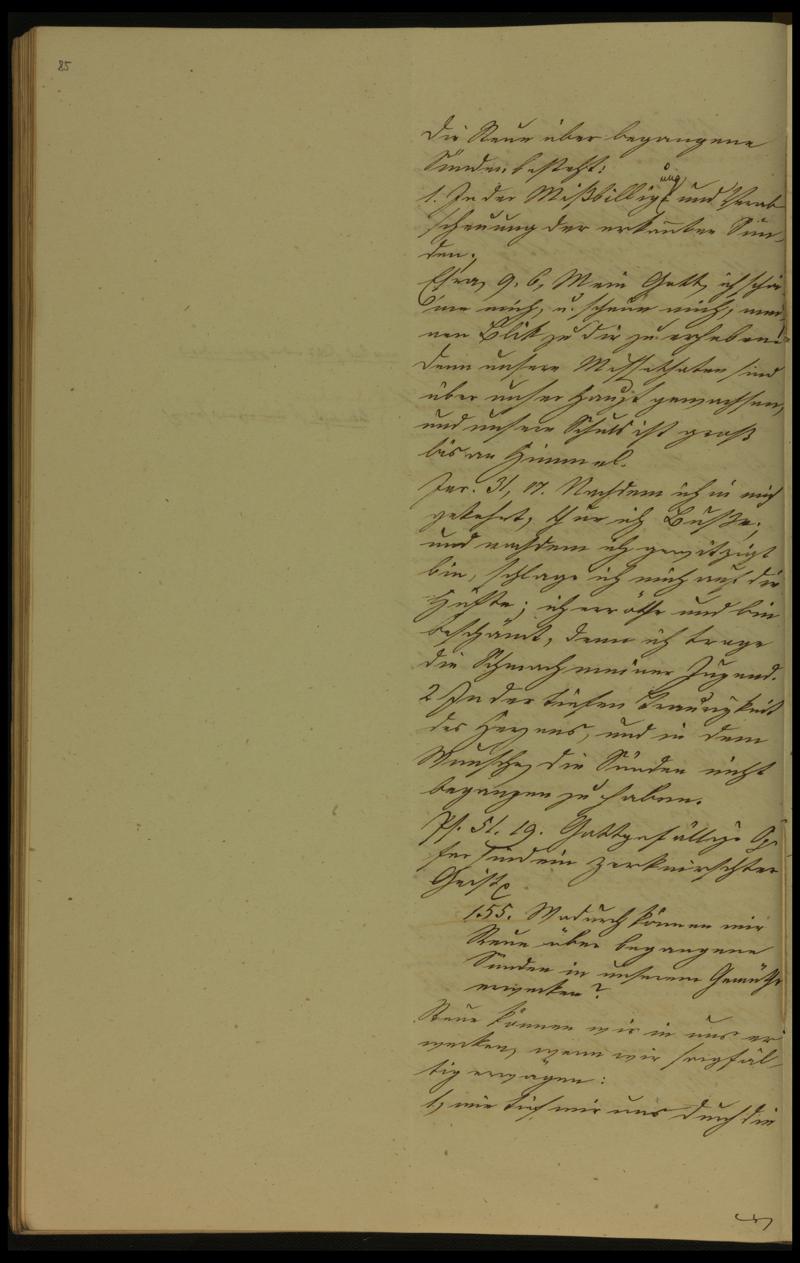 85
Die Reue über begangene
Sünden besteht:
1. In der Mißbilligung und Verab-
scheuung der erkannten Sün-
den.
Esra, 9. 6, Mein Gott, ich schä-
me mich, u. scheue mich, mei-
nen Blik zu dir zu erheben!
denn unsere Missethaten sind
über unser Haupt gewachsen,
und unsere Schuld ist groß
bis an Himmel.
Jer. 31, 17. Nachdem ich in mich
gekehrt, thue ich Buße;
und nachdem ich gewitzigt
bin, schlage ich mich auf die
Hüfte; ich erröthe und bin
beschämt, denn ich trage
die Schmach meiner Jugend.
2 In der tiefen Traurigkeit
des Herzens, und in dem
Wunsche, die Sünden nicht
begangen zu haben.
Ps. 51. 19. Gottgefällige Op-
fer sind ein zerknirschter
Geist
155. Wodurch können wir
Reue über begangene
Sünden in unserem Gemüthe
erwecken?
Reue können wir in uns er-
wecken, wenn wir sorgfäl-
tig erwägen:
1, wie tief wir uns durch die